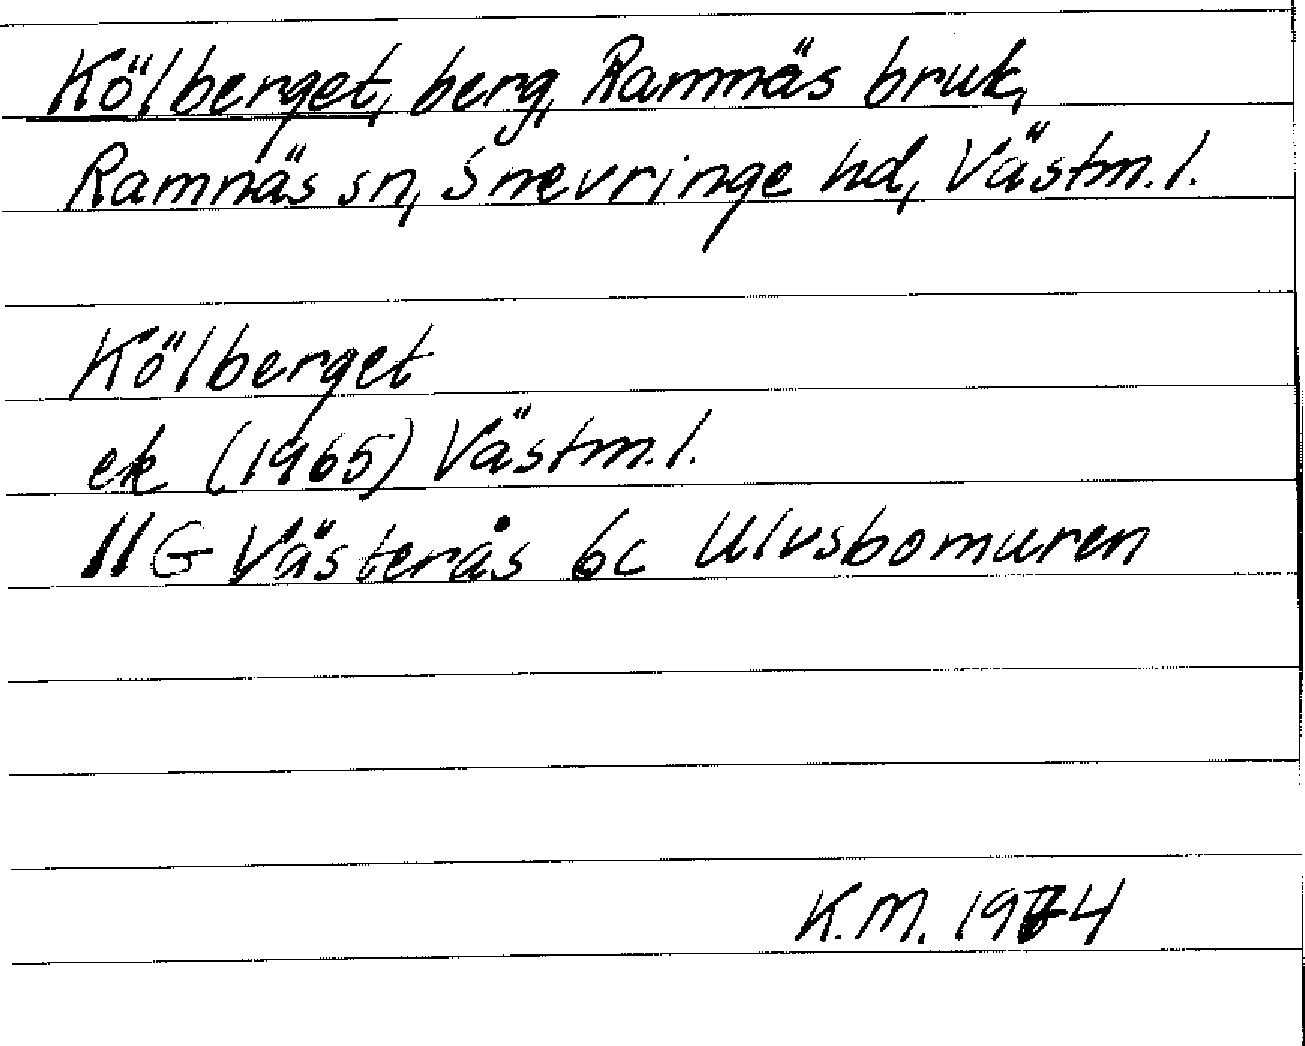 Kölberget, berg, Ramnäs bruk,
Ramnäs sn, Snevringe hd, Västm. l.
Kölberget
ek (1965) Västm. l.
11G Västerås 6c Ulvsbomuren
K.M. 1974